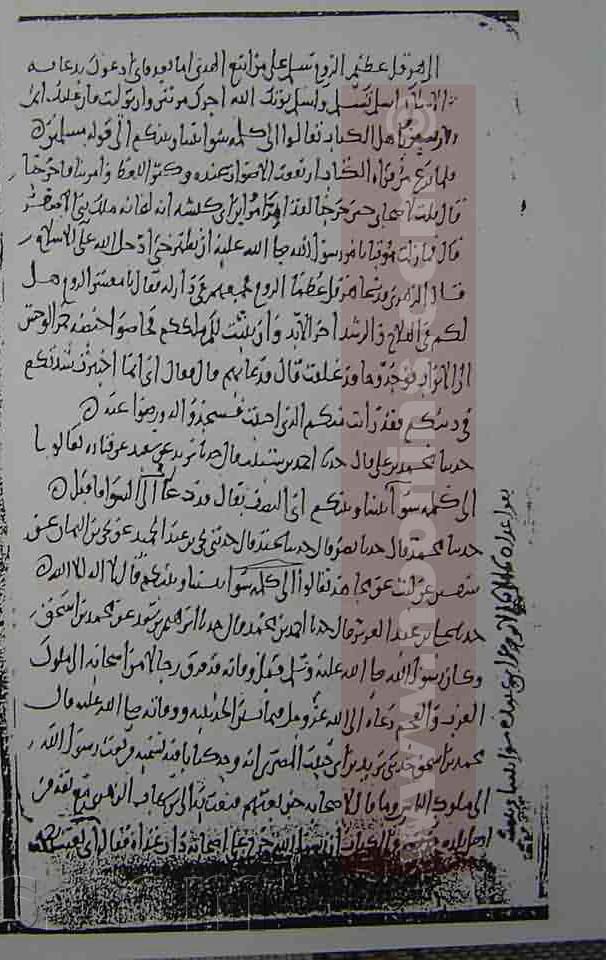 الى هرقل عظيم الروم سلم على من اتبع الهدى اما بعد فاني ادعوك بدعايه
الاسلام اسلم تسلم واسلم يوتك الله اجرك مرتين وان توليت فان عليك اثم
يا اهل الكتاب تعالوا الى كلمه سوا بيننا وبينكم الى قوله مسلمون
فلما فرغ من قراه الكتاب ارتفعت الاصوات عنده وكثر اللغط وامر بنا فاخرجنا
قال فقلت لاصحابي حين خرجنا لقد امر امر ابن ابي كبشه انه ليخافه ملك بني الاصفر
قال فما زلت موقنا بامر رسول الله صلى الله عليه ان يظهر حتى ادخل الله علي الاسلام
قال الزهري فدعا هرقل عظما الروم فجمعهم في دار له فقال يا معشر الروم هل
لكم في الفلاح والرشد اخر الابد وان يثبت لكم ملككم فحاصوا حيصه حمر الوحش
الى الابواب فوجدوها قد غلقت قال فدعاهم قال فقال اني انما اختبرت شدتكم
في دينكم فقد رايت منكم الذي احببت فسجدوا له ورضوا عنه
حدثنا محمد بن علي قال حدثنا احمد بن قال حدثنا يزيد عن سعيد عن قتاده تعالوا
الى كلمه سوا بيننا وبينكم اي النصف يقال قد دعا الى السوا فاقبل
حدثنا محمد قال حدثنا نصر قال حدثنا عبد قال حدثني يحيى بن عبد الحميد عن يحيى بن اليمان عن
سفين عن ليث عن مجاهد تعالوا الى كلمه سوا بيننا وبينكم قال لا اله الا الله
حدثنا علي بن عبد العزيز قال حدثنا احمد بن محمد قال حدثنا ابرهيم بن سعد عن محمد بن اسحق
وكان رسول الله صلى الله عليه وسلم قبل وفاته قد فرق رجالا من اصحابه الى ملوك
العرب والعجم دعاه الى الله عز وجل فيما بين الحديبيه ووفاته صلى الله عليه قال
محمد بن اسحق حدثني يزيد بن ابي حبيب المصري انه وجد كتابا فيه تسميه من بعث رسول الله
الى ملوك الناس وما قال لاصحابه حين بعثهم فبعثت به الى ابن شهاب الزهري مع ثقه من
اهل بلده فعرفه وفي الكتاب ان رسول الله خرج على اصحابه ذات غداه فقال لهم اني بعثت
www.nooonline.com